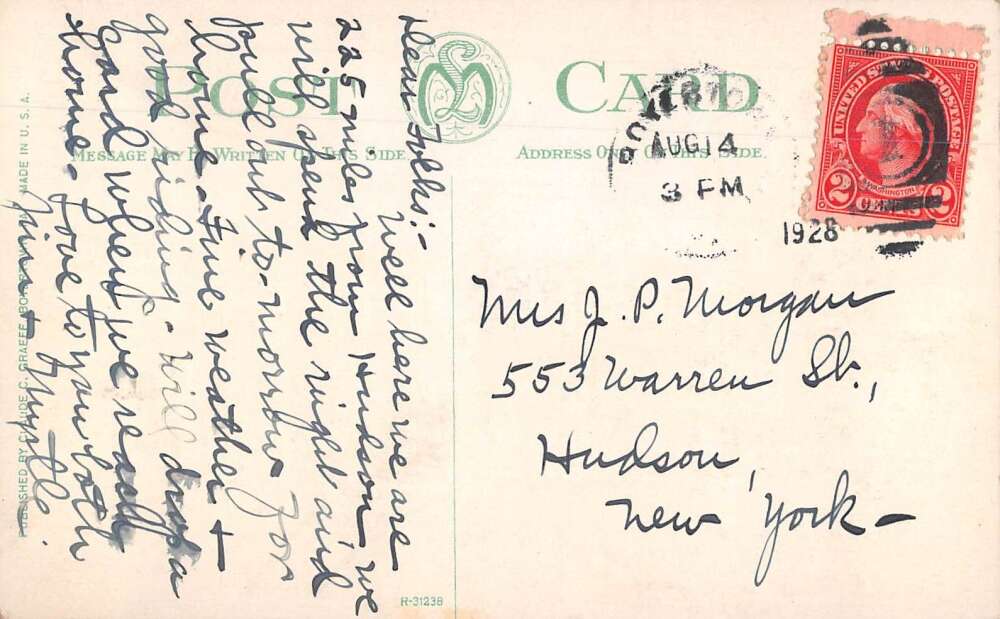 POST CARD
MESSAGE MAY BE WRITTEN ON THIS SIDE.
ADDRESS ONLY ON THIS SIDE.
Dear Folks:-
Well here we are
225 miles from Hudson we
will spend the night and
pull out to-morrow for
home - Fine weather +
good riding - will drop a
card when we reach
home - love to you both
Jim + Myrtle.
AUG 14
3 PM
1928
UNITED STATES POSTAGE
WASHINGTON
2 CENTS 2
Mrs J. P. Morgan
553 Warren St.,
Hudson,
New York -
PUBLISHED BY CLAUDE C. GRAEFF, MADE IN U.S.A.
R-31238